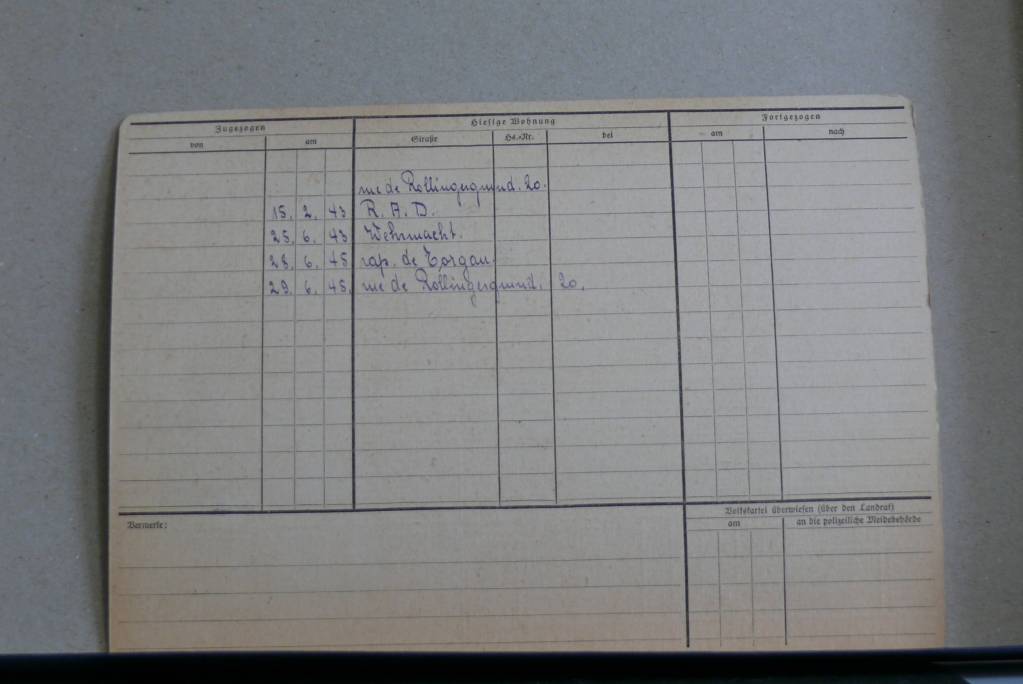 Zugezogen Hiesige Wohnung Fortgezogen
von am Straße Hs.-Nr. bei am nach
rue de Rollingergrund. 20.
15. 2. 43 R. A. D.
25. 6. 43 Wehrmacht.
28. 6. 45 rap. de Torgau.
29. 6. 45. rue de Rollingergrund. 20.
Vermerke:
Volkskartei überwiesen (über den Landrat)
am an die polizeiliche Meldebehörde